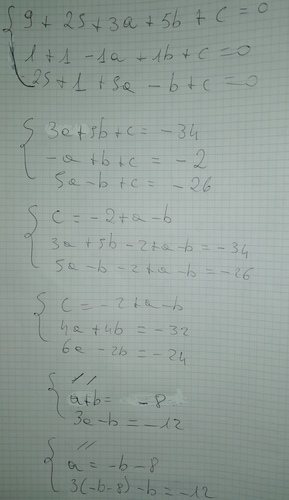 9 + 25 + 3a + 5b + c = 0
1 + 1 - 1a + 1b + c = 0
25 + 1 + 5a - b + c = 0
3a + 5b + c = -34
-a + b + c = -2
5a - b + c = -26
c = -2 + a - b
3a + 5b - 2 + a - b = -34
5a - b - 2 + a - b = -26
c = -2 + a - b
4a + 4b = -32
6a - 2b = -24
//
a + b = -8
3a - b = -12
//
a = -b - 8
3(-b-8) - b = -12